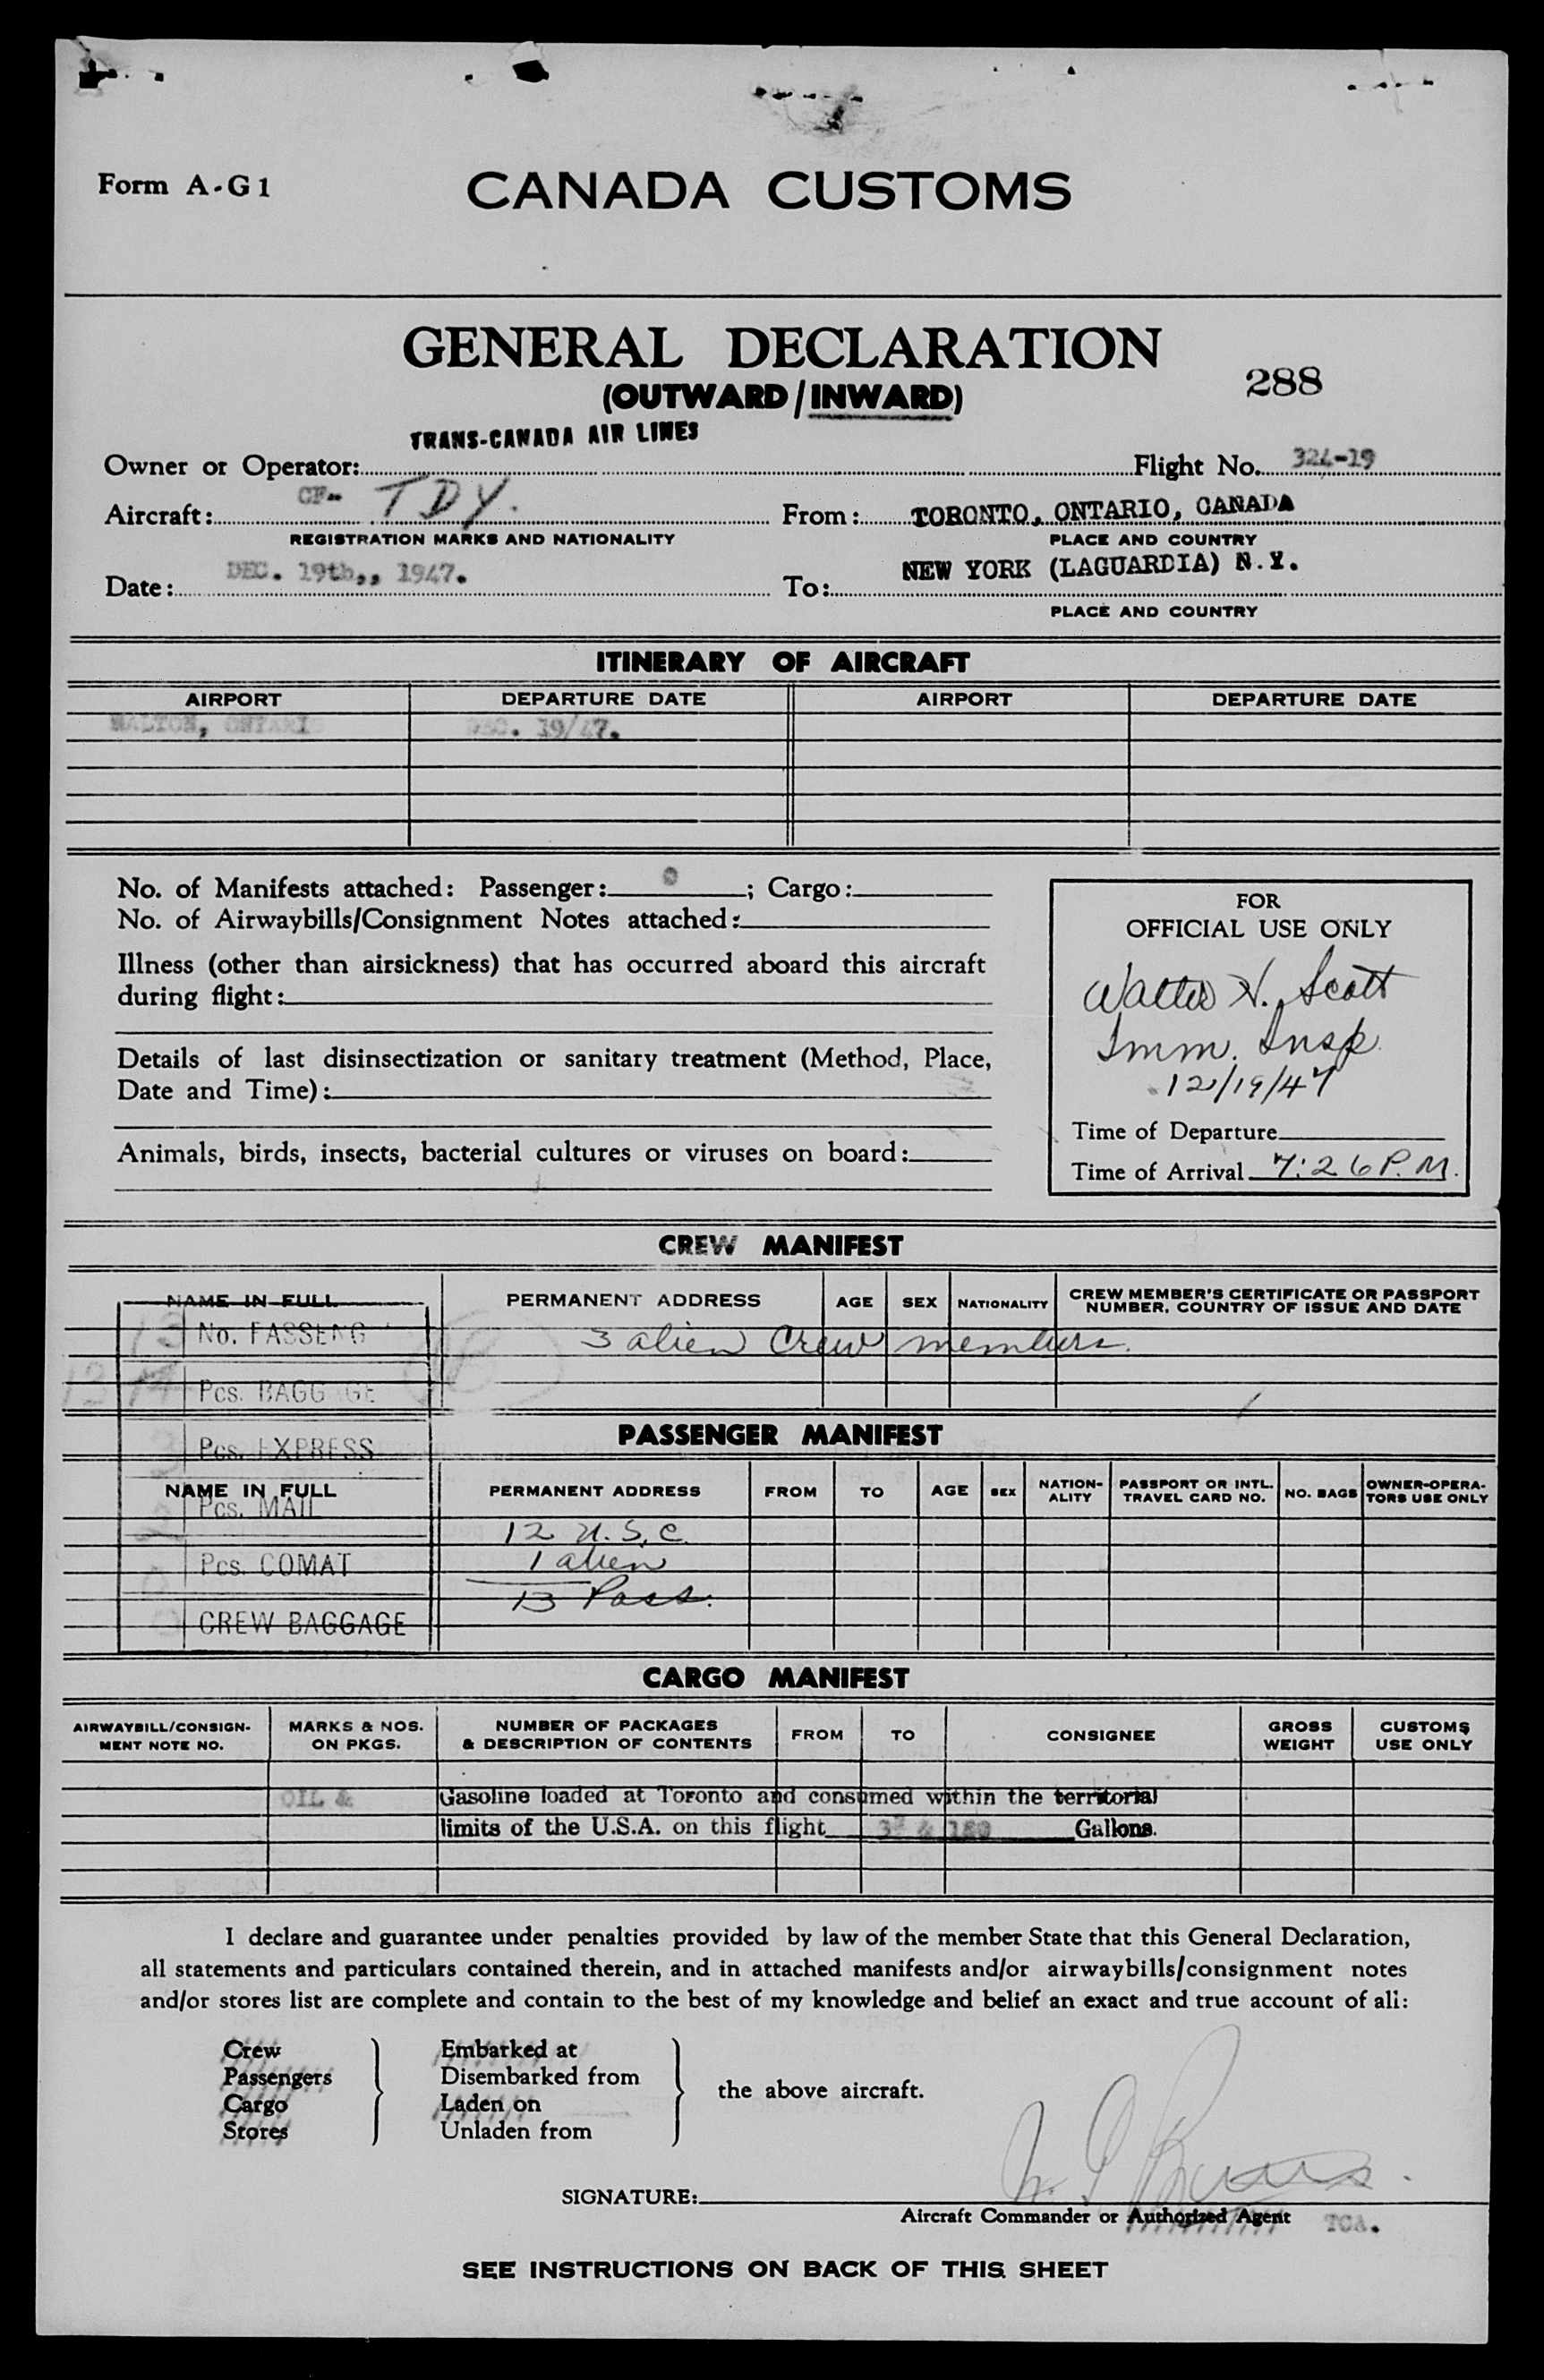 Form A-G1
CANADA CUSTOMS
GENERAL DECLARATION
(OUTWARD/INWARD)
288
TRANS-CANADA AIR LINES
Owner or Operator: Flight No. 324-19
Aircraft: CF- TDY. From: TORONTO, ONTARIO, CANADA
REGISTRATION MARKS AND NATIONALITY PLACE AND COUNTRY
Date: DEC. 19th,, 1947. To: NEW YORK (LAGUARDIA) N.Y.
PLACE AND COUNTRY
ITINERARY OF AIRCRAFT
AIRPORT DEPARTURE DATE AIRPORT DEPARTURE DATE
MALTON, ONTARI DEC. 19/47.
No. of Manifests attached: Passenger: 0; Cargo:
No. of Airwaybills/Consignment Notes attached:
Illness (other than airsickness) that has occurred aboard this aircraft
during flight:
Details of last disinsectization or sanitary treatment (Method, Place,
Date and Time):
Animals, birds, insects, bacterial cultures or viruses on board:
FOR
OFFICIAL USE ONLY
Walter H. Scott
Imm. Insp.
12/19/47
Time of Departure
Time of Arrival 7:26 P.M.
CREW MANIFEST
NAME IN FULL PERMANENT ADDRESS AGE SEX NATIONALITY CREW MEMBER'S CERTIFICATE OR PASSPORT
NUMBER, COUNTRY OF ISSUE AND DATE
13 No. PASSENG
3 alien Crew members.
Pcs. BAGGAGE
Pcs. EXPRESS
PASSENGER MANIFEST
NAME IN FULL PERMANENT ADDRESS FROM TO AGE SEX NATION-
ALITY PASSPORT OR INTL.
TRAVEL CARD NO. NO. BAGS OWNER-OPERA-
TORS USE ONLY
Pcs. MAIL
12 U.S.C.
Pcs. COMAT
1 alien
13 Pass.
CREW BAGGAGE
CARGO MANIFEST
AIRWAYBILL/CONSIGN-
MENT NOTE NO. MARKS & NOS.
ON PKGS. NUMBER OF PACKAGES
& DESCRIPTION OF CONTENTS FROM TO CONSIGNEE GROSS
WEIGHT CUSTOMS
USE ONLY
OIL & Gasoline loaded at Toronto and consumed within the territorial
limits of the U.S.A. on this flight Gallons.
I declare and guarantee under penalties provided by law of the member State that this General Declaration,
all statements and particulars contained therein, and in attached manifests and/or airwaybills/consignment notes
and/or stores list are complete and contain to the best of my knowledge and belief an exact and true account of all:
Crew Embarked at
Passengers Disembarked from
the above aircraft.
Cargo Laden on
Stores Unladen from
SIGNATURE:
Aircraft Commander or Authorized Agent TCA.
SEE INSTRUCTIONS ON BACK OF THIS SHEET